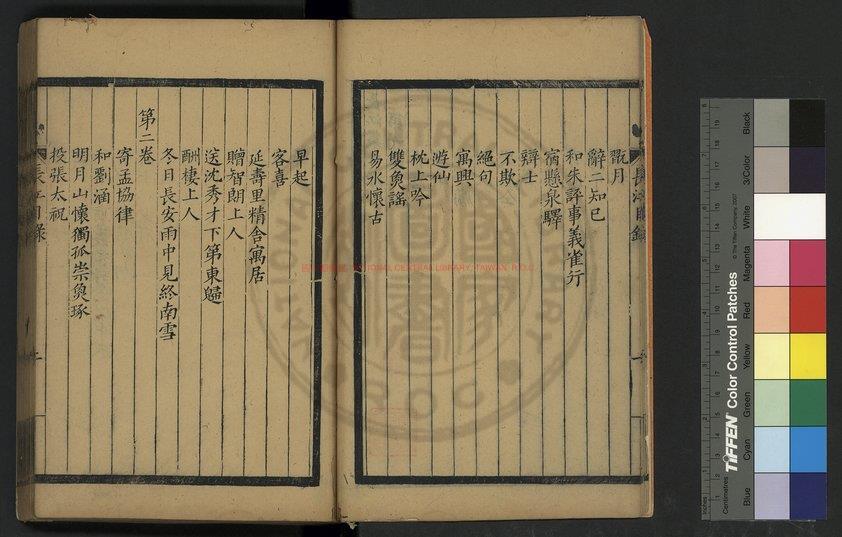 翫月
辭二知己
和朱評事義雀行
宿懸泉驛
辯士
不欺
絕句
寓興
遊仙
枕上吟
雙魚謠
易水懷古
早起
客喜
延壽里精舍寓居
贈智朗上人
送沈秀才下第東歸
酬棲上人
冬日長安雨中見終南雪
第二卷
寄孟協律
和劉涵
明月山懷獨孤崇魚琢
投張太祝
長江目錄
NATIONAL CENTRAL LIBRARY, TAIWAN R.O.C.
TIFFEN Color Control Patches
© The Tiffen Company, 2007
Centimetres
Inches
Blue
Cyan
Green
Yellow
Red
Magenta
White
3/Color
Black